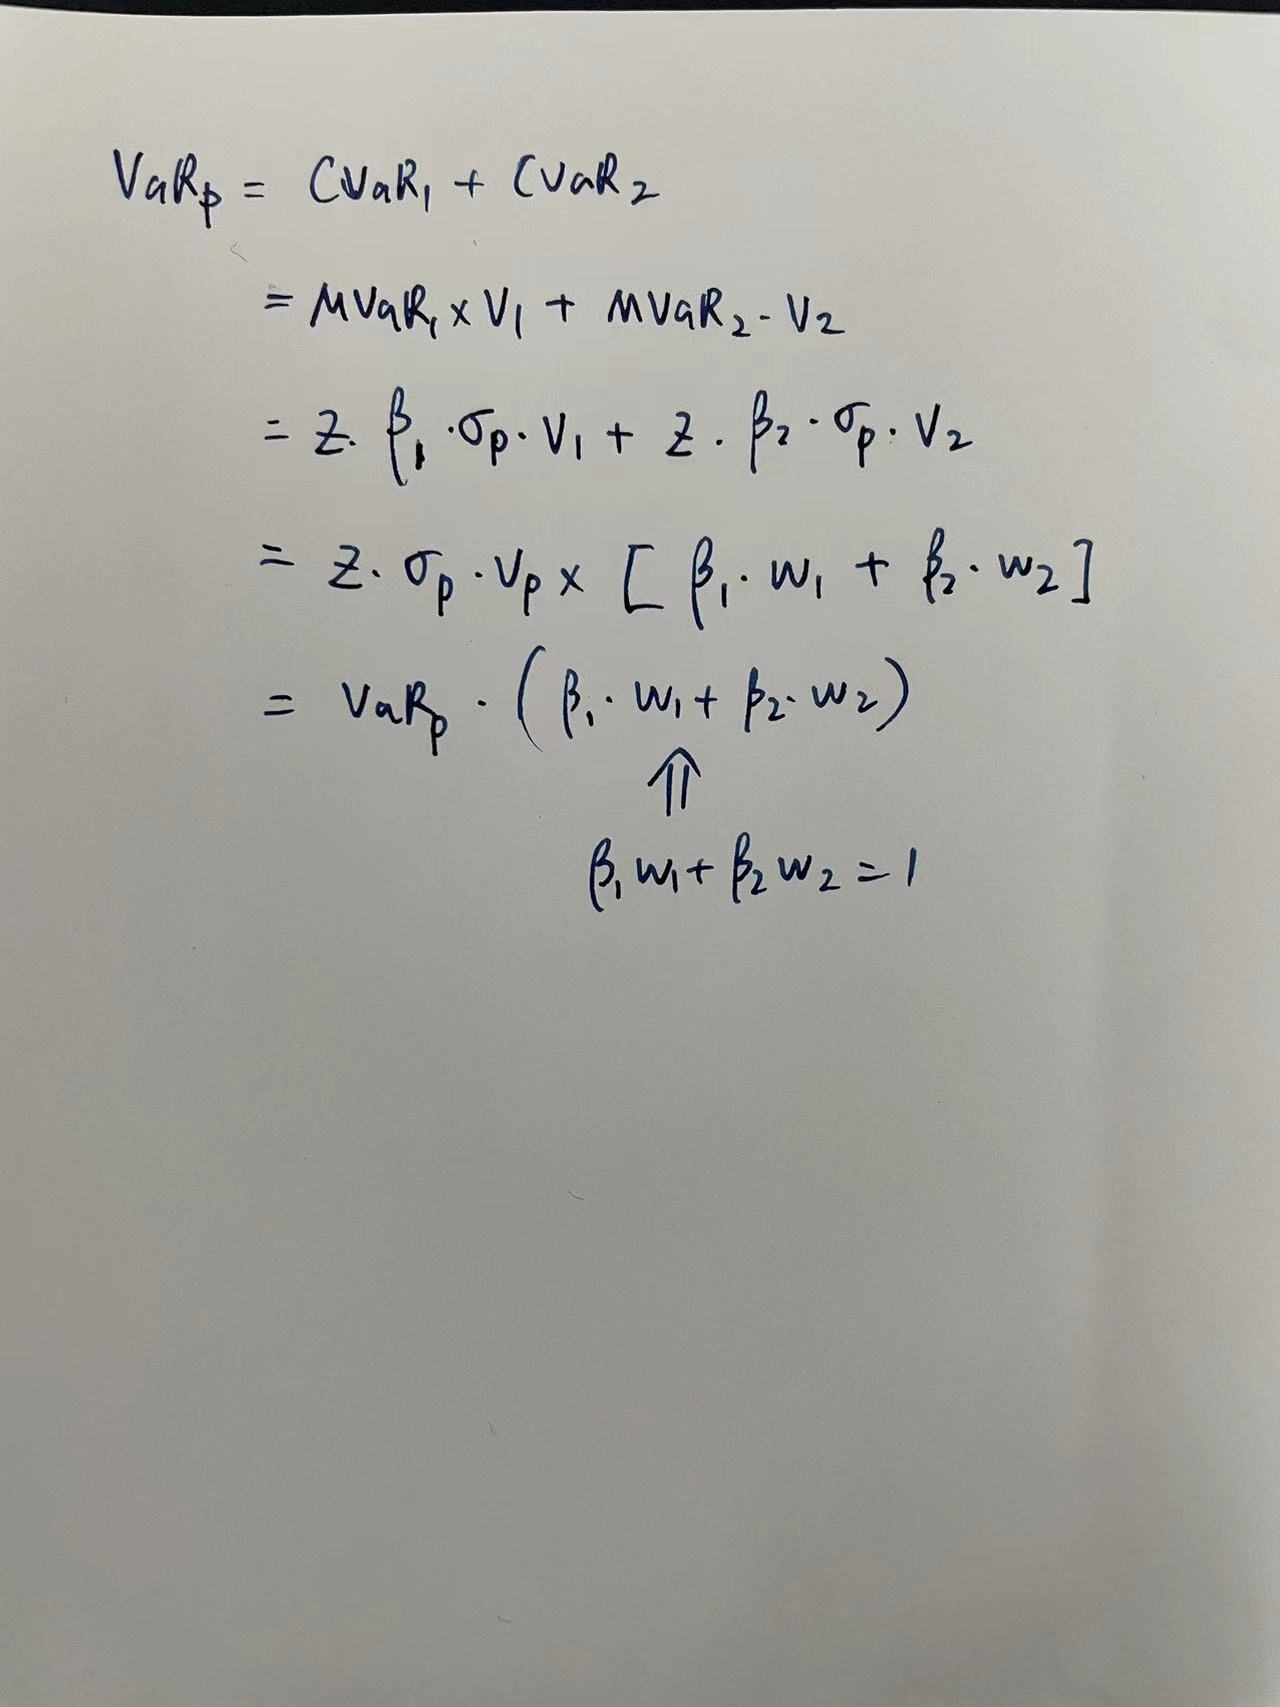 VaRₚ = CVaR₁ + CVaR₂
= MVaR₁ × V₁ + MVaR₂ · V₂
= Z · β₁ · σₚ · V₁ + Z · β₂ · σₚ · V₂
= Z · σₚ · Vₚ × [ β₁ · w₁ + β₂ · w₂ ]
= VaRₚ · ( β₁ · w₁ + β₂ · w₂ )
⇑
β₁ w₁ + β₂ w₂ = 1